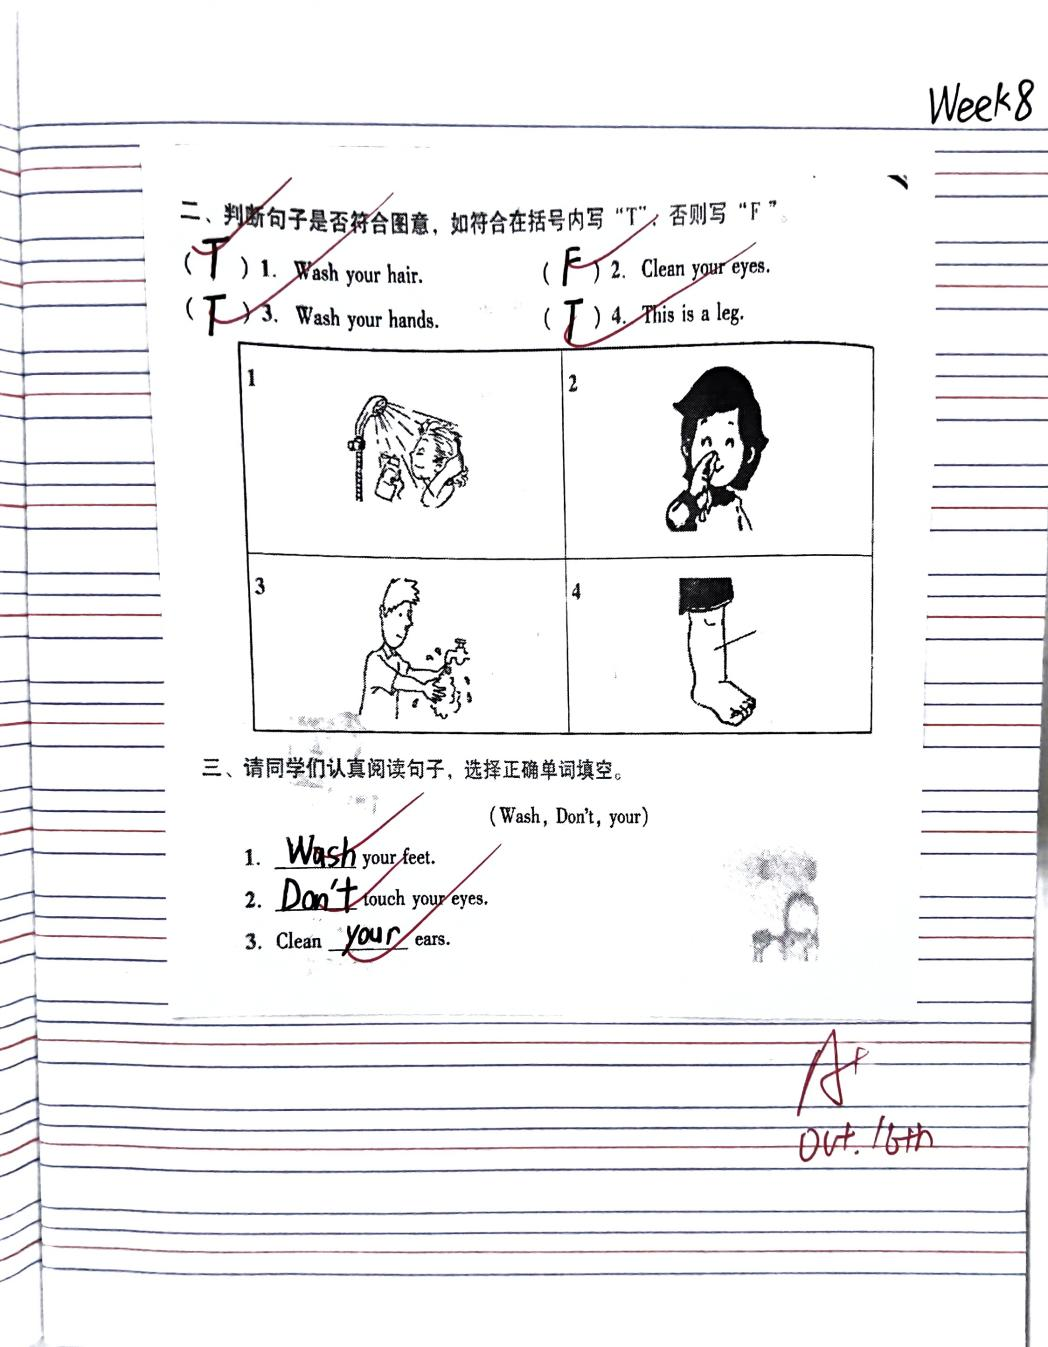 Week8
二、判断句子是否符合图意，如符合在括号内写“T”，否则写“F”。
(T) 1. Wash your hair. (F) 2. Clean your eyes.
(T) 3. Wash your hands. (T) 4. This is a leg.
1 2
3 4
三、请同学们认真阅读句子，选择正确单词填空。
(Wash, Don't, your)
1. Wash your feet.
2. Don't touch your eyes.
3. Clean your ears.
A+
16th